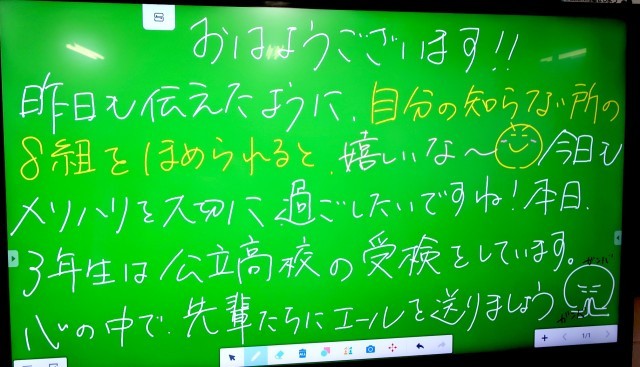 おはようございます!!
昨日も伝えたように、自分の知らない所の
8組をほめられると、嬉しいな〜今日も
メリハリを大切に過ごしたいですね!本日、
3年生は公立高校の受検をしています。
心の中で、先輩たちにエールを送りましょう
1/1